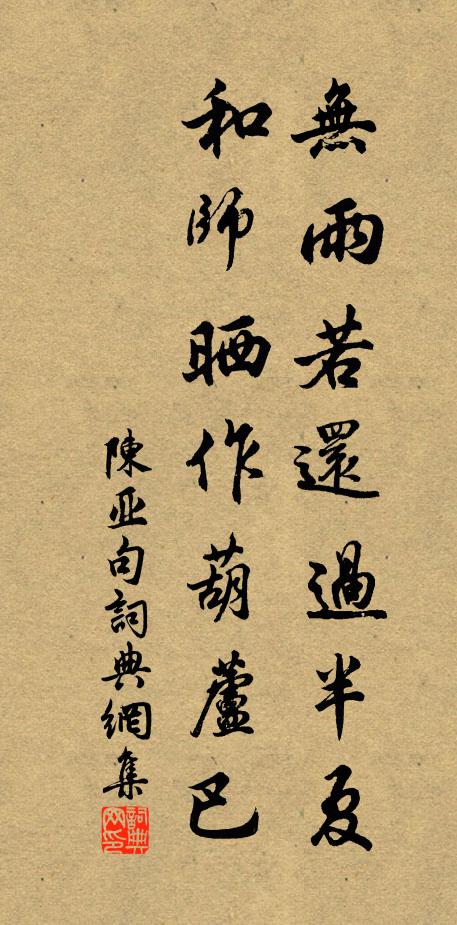 無雨若還過半夏
和師晒作葫蘆巴
陳亚句詞典網集
詞典網印